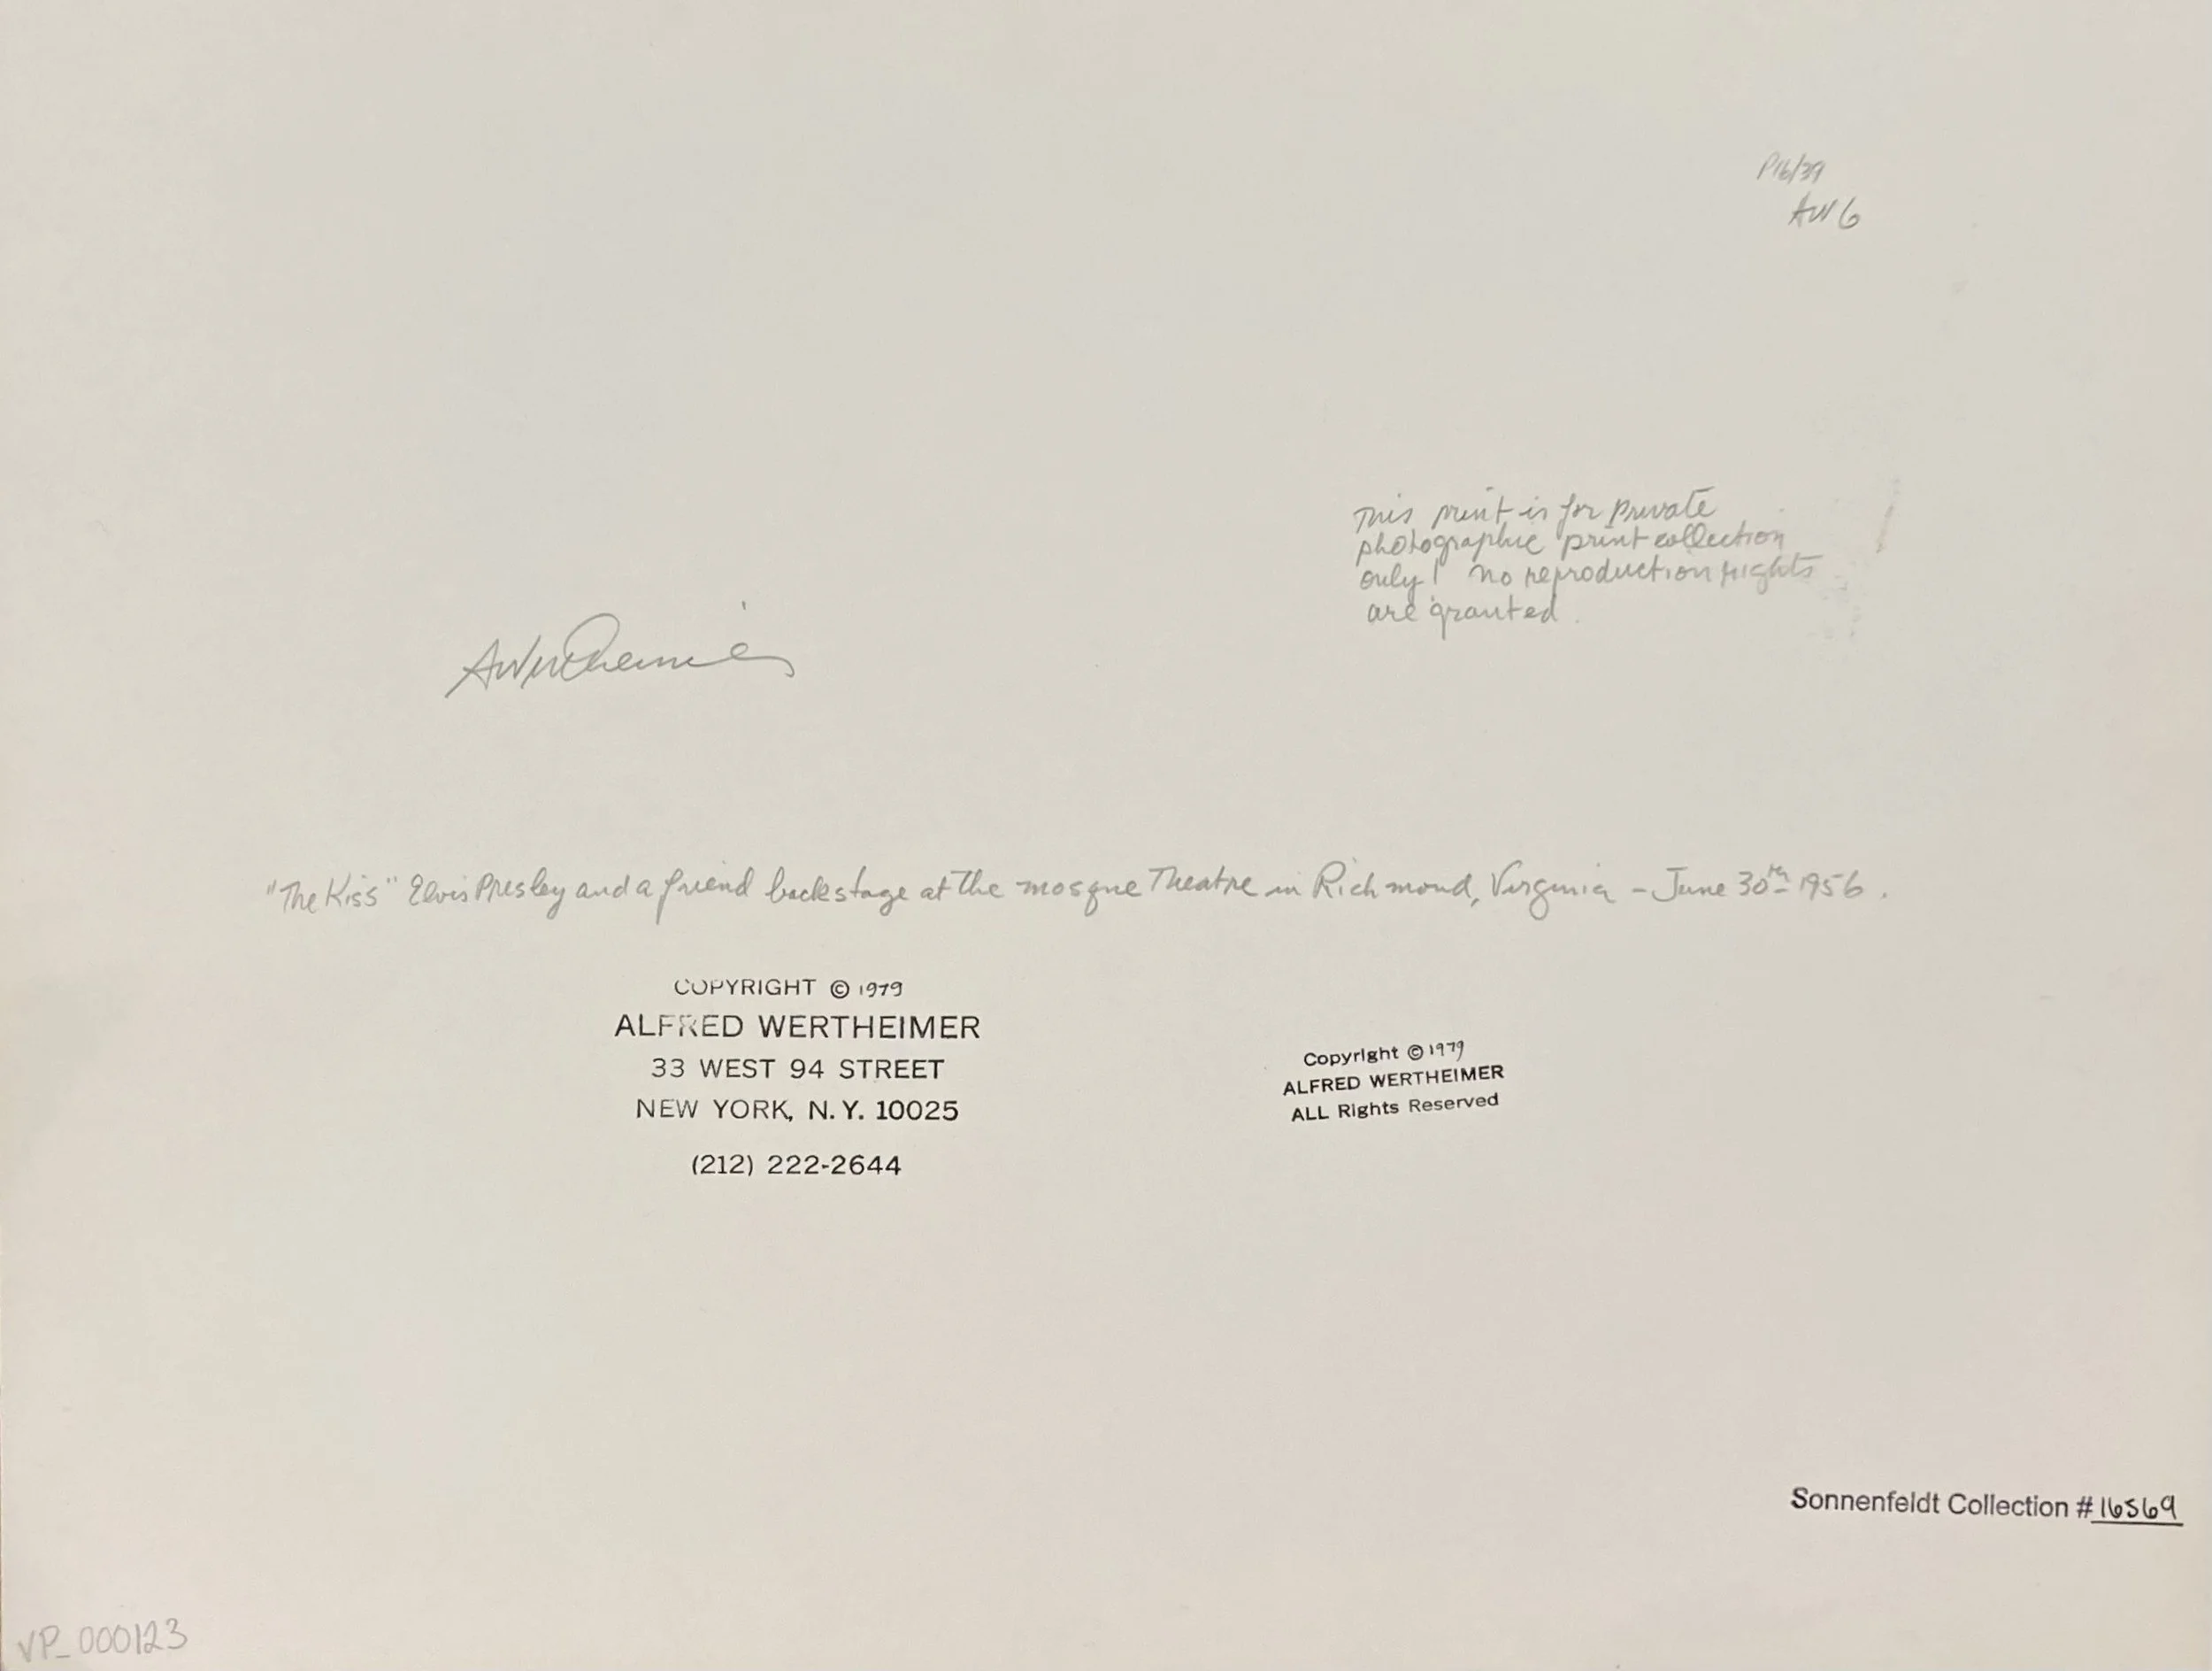 P16/39
AW 6
This print is for private
photographic print collection
only! no reproduction rights
are granted.
AWertheimer
"The Kiss" Elvis Presley and a friend backstage at the mosque Theatre in Richmond, Virginia - June 30th 1956.
COPYRIGHT © 1979
ALFRED WERTHEIMER
33 WEST 94 STREET
NEW YORK, N.Y. 10025
(212) 222-2644
Copyright © 1979
ALFRED WERTHEIMER
ALL Rights Reserved
Sonnenfeldt Collection # 16569
VP_000123